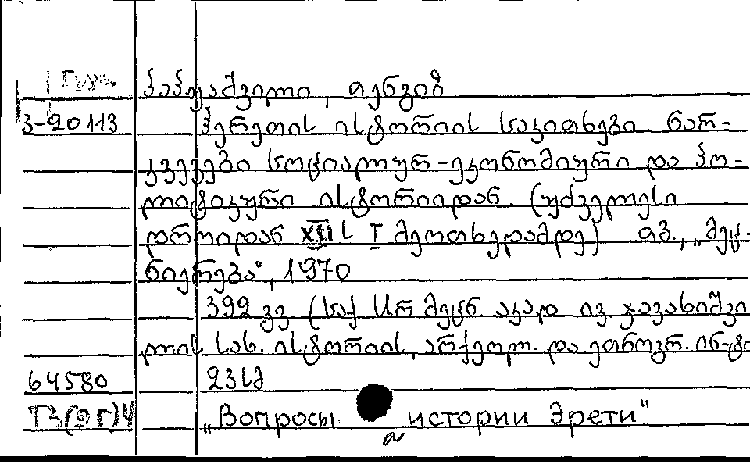 პაპუაშვილი, თენგიზ
3-20113 ჰერეთის ისტორიის საკითხები ნარ-
კვევები სოციალურ-ეკონომიური და პო-
ლიტიკური ისტორიიდან. (უძველესი
დროიდან XIII ს I მეოთხედამდე) თბ., „მეც-
ნიერება", 1970
392 გვ (საქ სსრ მეცნ. აკად ივ. ჯავახიშვი
ლის სახ. ისტორიის, არქეოლ. და ეთნოგრ. ინ-ტი
64580 23სმ
„Вопросы истории Эрети"